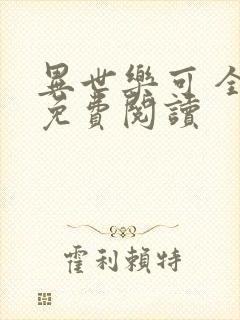 異世樂可 全
免費閱讀
霍利賴特